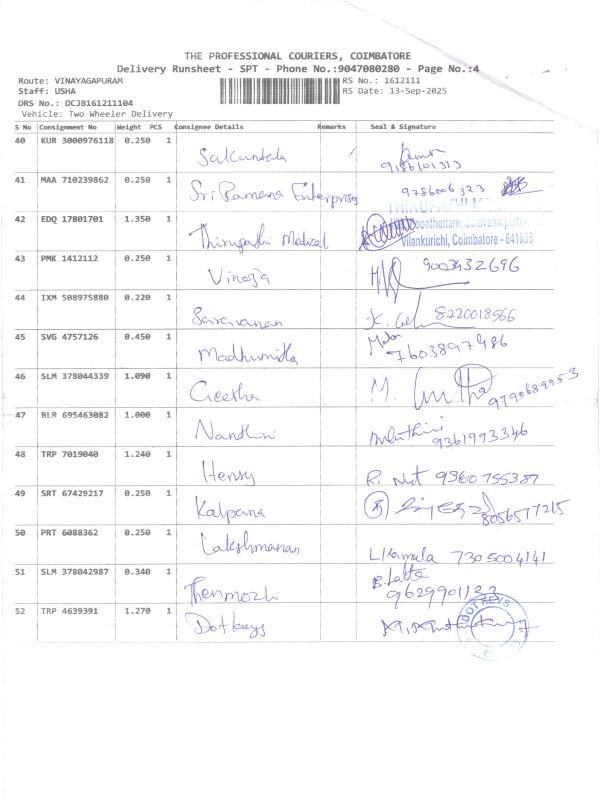 THE PROFESSIONAL COURIERS, COIMBATORE
Delivery Runsheet - SPT - Phone No.:9047080280 - Page No.:4
Route: VINAYAGAPURAM RS No.: 1612111
Staff: USHA RS Date: 13-Sep-2025
DRS No.: DCJB161211104
Vehicle: Two Wheeler Delivery
S No Consignment No Weight PCS Consignee Details Remarks Seal & Signature
40 KUR 3000976118 0.250 1 Sakuntala 9186101313
41 MAA 710239862 0.250 1 Sri Ramana Enterprises 9786006323
42 EDQ 17801701 1.350 1 Thirupathi Medical
Vilankurichi, Coimbatore - 641035
43 PMK 1412112 0.250 1 Vinoja 9003432696
44 IXM 508975880 0.220 1 Saravanan 8220018566
45 SVG 4757126 0.450 1 Madhumitha 7603897486
46 SLM 378044339 1.090 1 Geetha M. 9790689953
47 BLR 695463082 1.000 1 Nandhini 9361993346
48 TRP 7019040 1.240 1 Henry R. 9360755387
49 SRT 67429217 0.250 1 Kalpana 8056577215
50 PRT 6088362 0.250 1 Lakshmanan L.Kamala 7305004141
51 SLM 378042987 0.340 1 Thenmozhi B.Latha 9629901132
52 TRP 4639391 1.270 1 Dotkeys
DOT KEYS